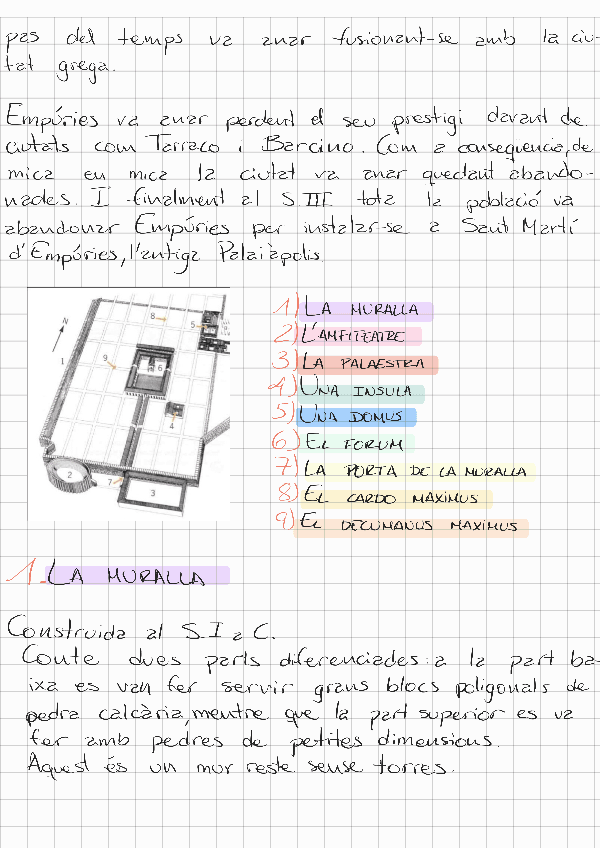 pas del temps va anar fusionant-se amb la ciu-
tat grega.
Empúries va anar perdent el seu prestigi davant de
ciutats com Tarraco i Barcino. Com a consequencia, de
mica en mica la ciutat va anar quedant abando-
nades. I finalment al S.III tota la població va
abandonar Empúries per instalar-se a Sant Martí
d'Empúries, l'antiga Palaiàpolis.
N
1
2
3
4
5
6
7
8
9
1) LA MURALLA
2) L'AMFITEATRE
3) LA PALAESTRA
4) UNA INSULA
5) UNA DOMUS
6) EL FORUM
7) LA PORTA DE LA MURALLA
8) EL CARDO MAXIMUS
9) EL DECUMANUS MAXIMUS
1. LA MURALLA
Construida al S.I a C.
Conte dues parts diferenciades: a la part ba-
ixa es van fer servir grans blocs poligonals de
pedra calcària, mentre que la part superior es va
fer amb pedres de petites dimensions.
Aquest és un mur reste sense torres.